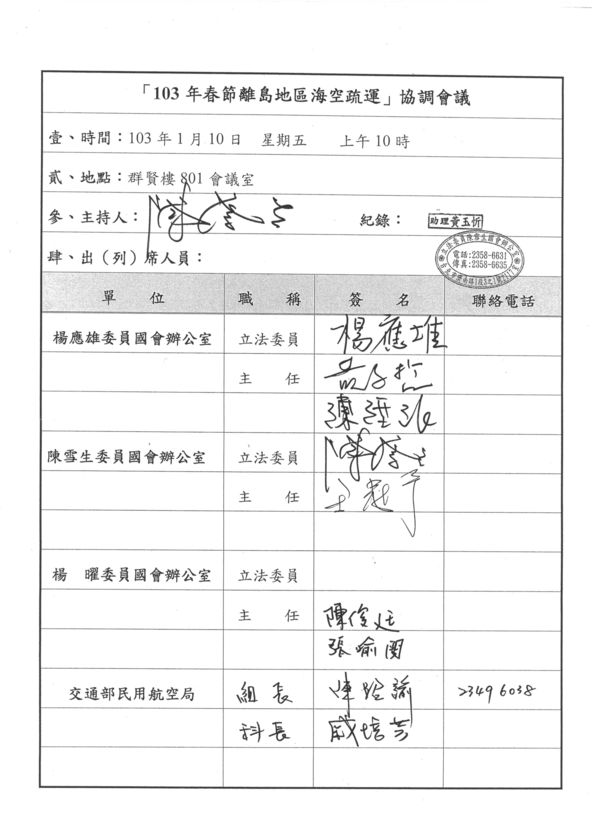 「103 年春節離島地區海空疏運」協調會議
壹、時間：103 年 1 月 10 日　星期五　　上午 10 時
貳、地點：群賢樓 801 會議室
參、主持人：　　紀錄：　助理黃玉忻
立法委員陳雪生國會辦公室
電話:2358-6631
傳真:2358-6635
肆、出（列）席人員：
單　位　職　稱　簽　名　聯絡電話
楊應雄委員國會辦公室　立法委員　楊應雄
主　任
陳雪生委員國會辦公室　立法委員　陳雪生
主　任
楊　曜委員國會辦公室　立法委員
主　任　陳俊廷
張喻閔
交通部民用航空局　組長　　23496038
科長　戚培芳